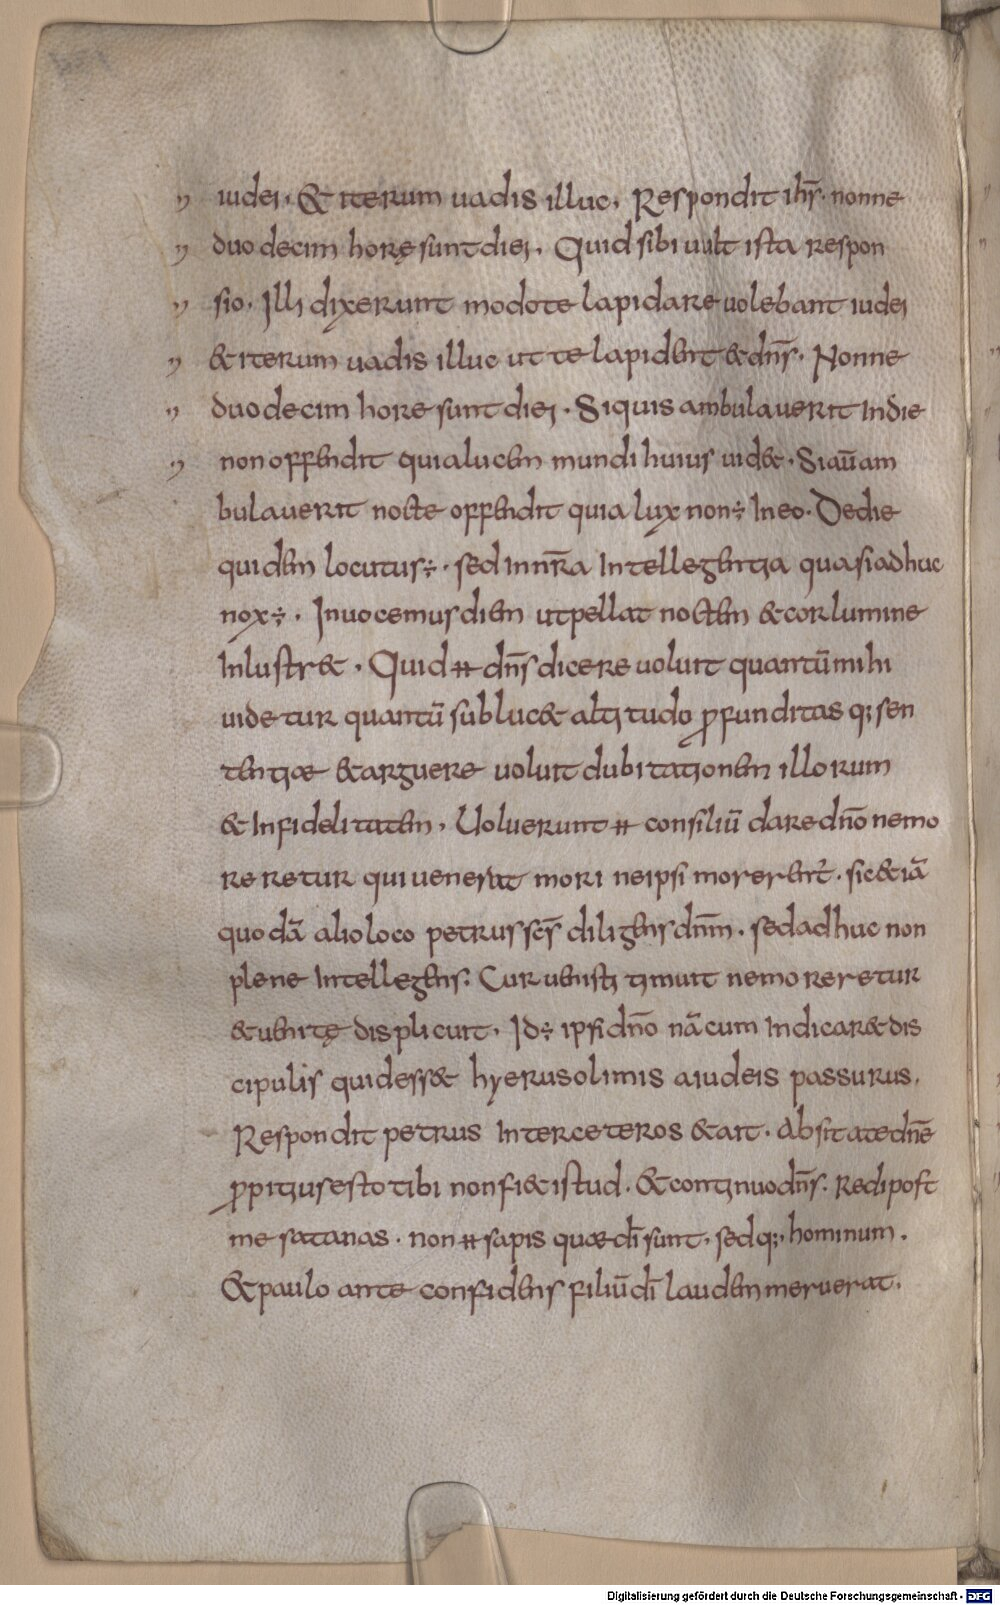 " iudei · & iterum uadis illuc, Respondit ihs̄ · nonne
" duodecim horę sunt diei, Quid sibi uult ista respon
" sio · Illi dixerunt modo te lapidare uolebant iudei
" & iterum uadis illuc ut te lapident & dn̄s · Nonne
" duodecim hore sunt diei · Si quis ambulauerit In die
" non offendit quia lucem mundi huius uid& · Si aū am
bulauerit nocte offendit quia lux non ÷ In eo · De die
quidem locutus ÷ · sed In nr̄a Intellegentia quasi adhuc
nox ÷ · Inuocemus diem ut pellat noctem & cor lumine
Inlustr& · Quid ħ dn̄s dicere uoluit quantū mihi
uidetur quantū subluc& altitudo ꝓfunditas q; sen
tentiæ & arguere uoluit dubitationem illorum
& Infidelitatem, Uoluerunt ħ consiliū dare dn̄o ne mo
reretur qui uenerat mori ne ipsi morerent̄ · sic & iā
quodā alio loco petrus scs̄ diligens dn̄m · sed adhuc non
plene Intellegens · Cur uenisti timuit ne moreretur
& uentę displicuit, Id ÷ ipsi dn̄o nā cum Indicar& dis
cipulis quid ess& hyerusolimis a iudeis passurus,
Respondit petrus Inter ceteros & ait · Absit a te dn̄e
ꝓpitius esto tibi non fi& istud · & continuo dn̄s · Redi post
me satanas · non ħ sapis quæ dī sunt, sed q; hominum ·
& paulo ante confidens filiū dī laudem meruerat,
Digitalisierung gefördert durch die Deutsche Forschungsgemeinschaft - DFG